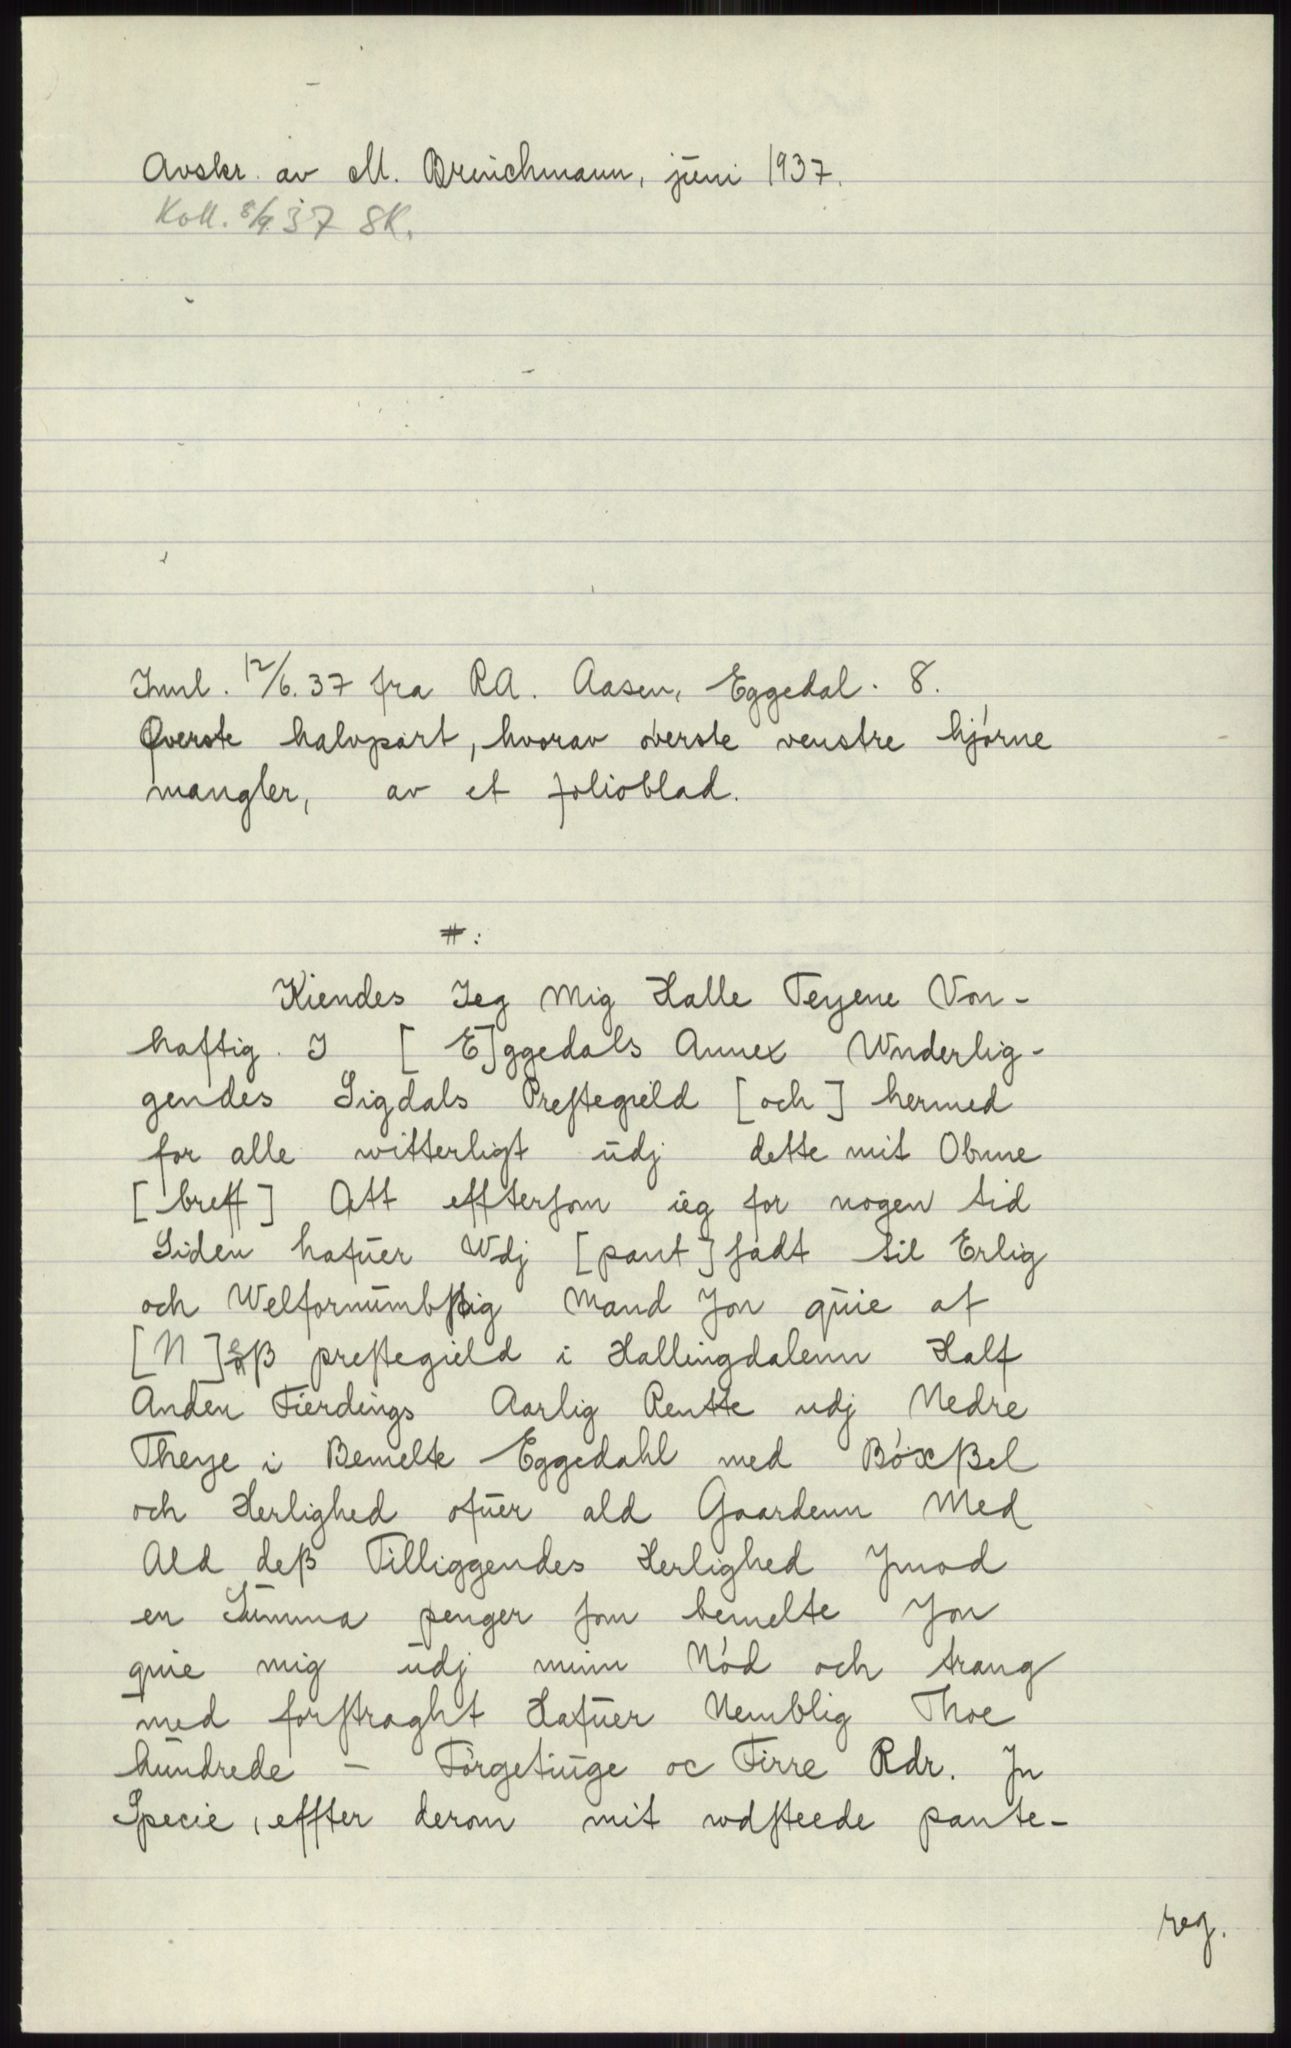 Avskr. av M. Brinchmann, juni 1937.
Koll. 8/9.37 SK.
Innl. 12/6.37 fra RA. Aasen, Eggedal. 8.
Øverste halvpart, hvorav øverste venstre hjørne
mangler, av et folioblad.
#:
Kiendes Jeg Mig Halle Teyene Von-
haftig J [E]ggedals Annex Wnderlig-
gendes Sigdals Prestegield [och] hermed
for alle witterligt udj dette mit Obnne
[breff] Att efftersom ieg for nogen tid
Siden hafuer Wdj [pant]sadt til Erlig
och Welfornumbstig Mand Jon quie af
[N]eß prestegield i Hallingdalenn Half
Anden Fierdings Aarlig Rentte udj Nedre
Theye i Bemelte Eggedahl med Böxßel
och Herlighed ofuer ald Gaardenn Med
Ald deß Tilliggendes Herlighed Jmod
en Summa penger som bemelte Jon
quie mig udj minn Nöd och trang
med forstraght Hafuer Nemblig Thoe
hundrede – Förgetiuge oc Firre Rdr. Jn
Specie, effter derom mit wdsteede pante-
reg.